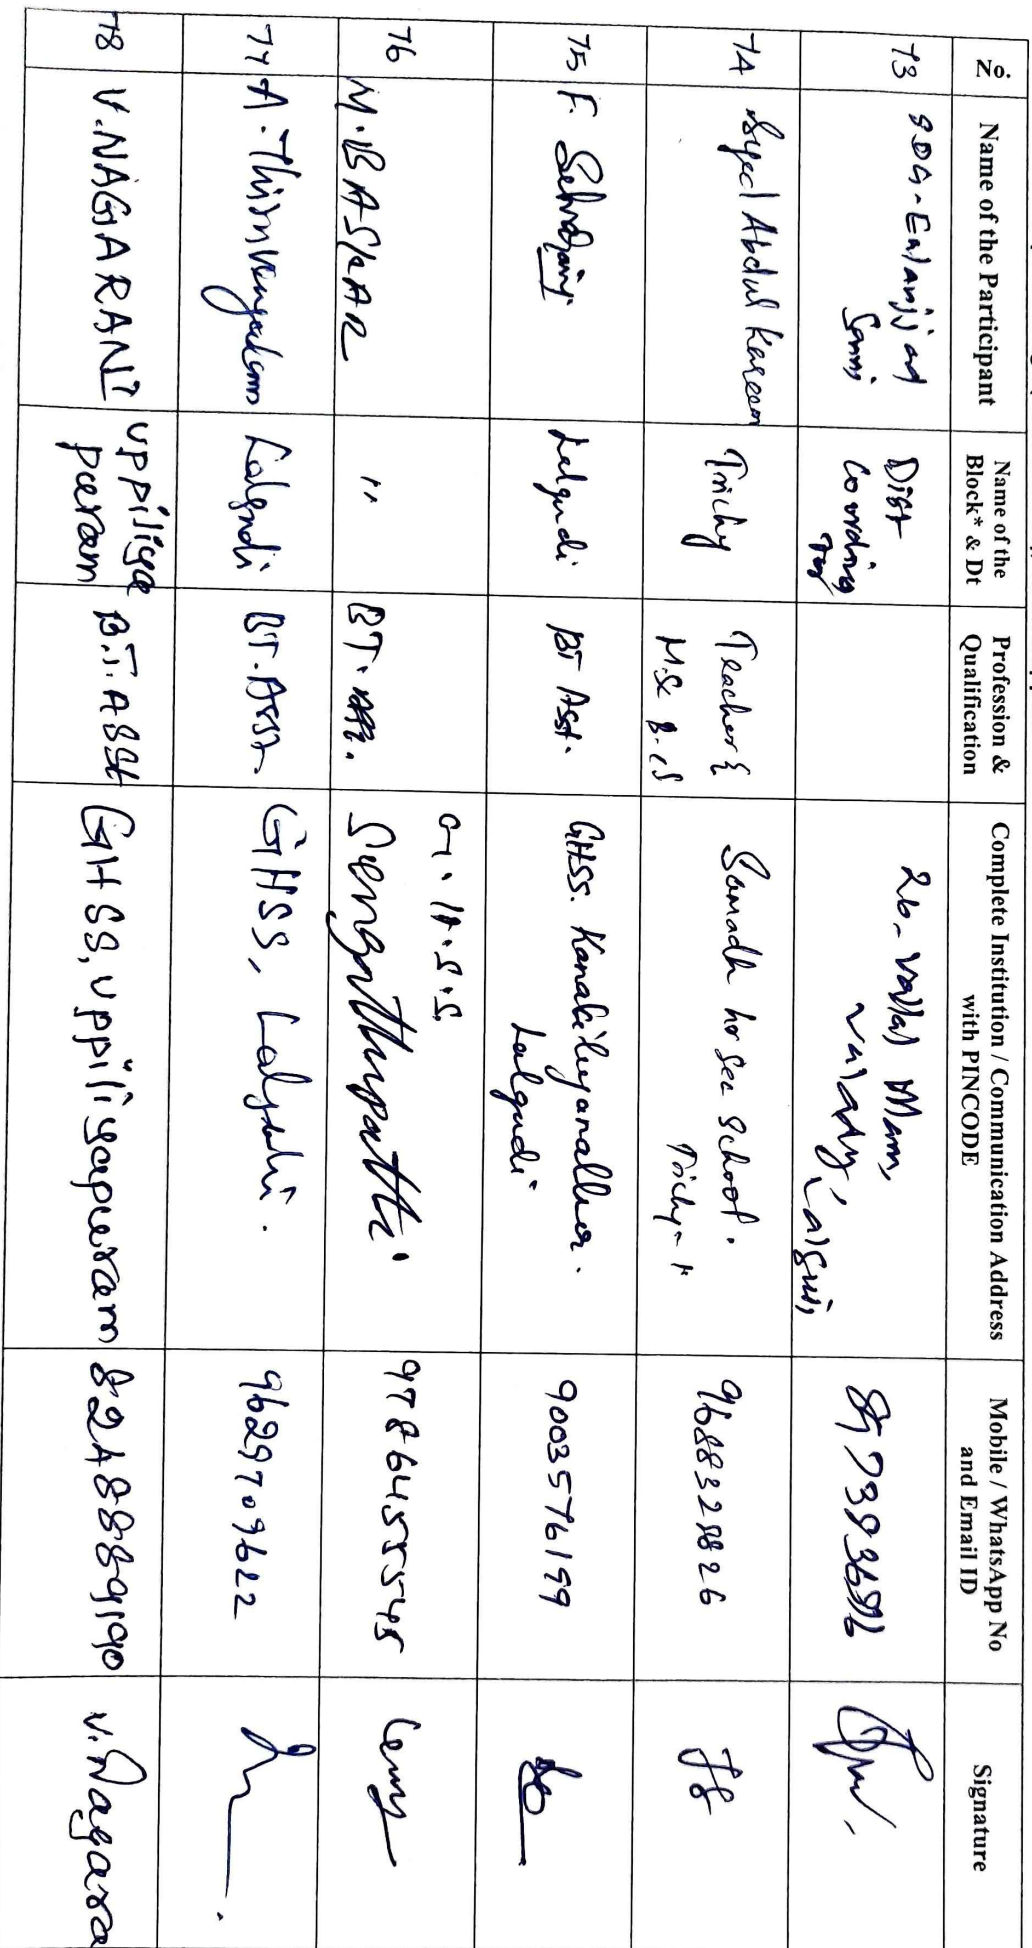 No.
Name of the Participant
Name of the
Block* & Dt
Profession &
Qualification
Complete Institution / Communication Address
with PINCODE
Mobile / WhatsApp No
and Email ID
Signature
73
Dist
26-
74
Syed Abdul Kareem
Trichy
Teacher &
M.Sc B.
hr sec School.
Trichy-
9688328826
75
F.
Lalgudi
BT Asst.
GHSS. Kanakiliyanallur.
Lalgudi
9003576199
76
M.BASKAR
"
BT.
G.H.S.S.
Sengattupatti.
9786455545
77
A.Thiruvengadam
Lalgudi
BT.Asst.
GHSS, Lalgudi.
9629709622
78
V.NAGARANI
Uppiliya
puram
B.T.ASst
GHSS, Uppiliyapuram
8248889190
V.Nagara